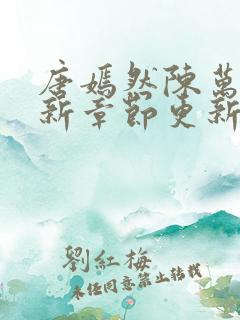 唐嫣然陳萬
新章節更新
劉紅梅
未經同意禁止轉載